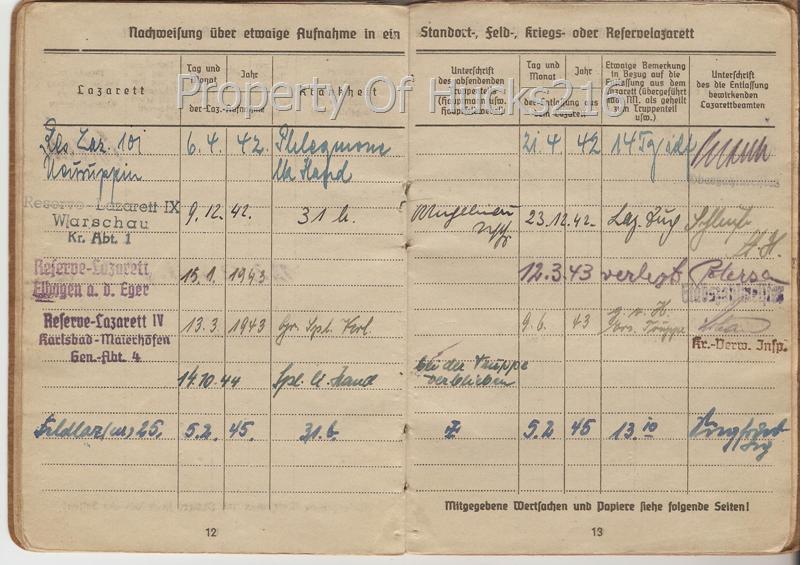 Nachweisung über etwaige Aufnahme in ein Standort-, Feld-, Kriegs- oder Reservelazarett
Property Of Hucks216
Lazarett
Tag und Monat
Jahr
der Laz.-Aufnahme
Krankheit
Unterschrift des absendenden Truppenteils (Hauptmanns usw. Hauptfeldwebels)
Tag und Monat
Jahr
der Entlassung aus dem Lazarett
Etwaige Bemerkung in Bezug auf die Entlassung aus dem Lazarett (übergeführt nach M. als geheilt zum Truppenteil usw.)
Unterschrift des die Entlassung bewirkenden Lazarettbeamten
Res. Laz. 101 6.4. 42. Phlegmone 21.4 42 14 Tg
Neuruppin Hand
Reserve-Lazarett IX
Warschau 9.12. 42. 31 b. 23.12. 42. Laz. Zug
Kr. Abt. 1
Reserve-Lazarett 15.1. 1943 12.3.43 verlegt
Elbogen a. d. Eger
Reserve-Lazarett IV 13.3 1943 Gr. Spl. Verl. 9.6. 43 g. v. H.
Karlsbad-Maierhöfen Ers. Truppe
Gen.-Abt. 4 Kr.-Verw. Insp.
14.10. 44 Spl. bei der Truppe
verblieben
Feldlaz 25. 5.2. 45. 31.b. 5.2 45 13.10
Mitgegebene Wertsachen und Papiere siehe folgende Seiten!
12
13